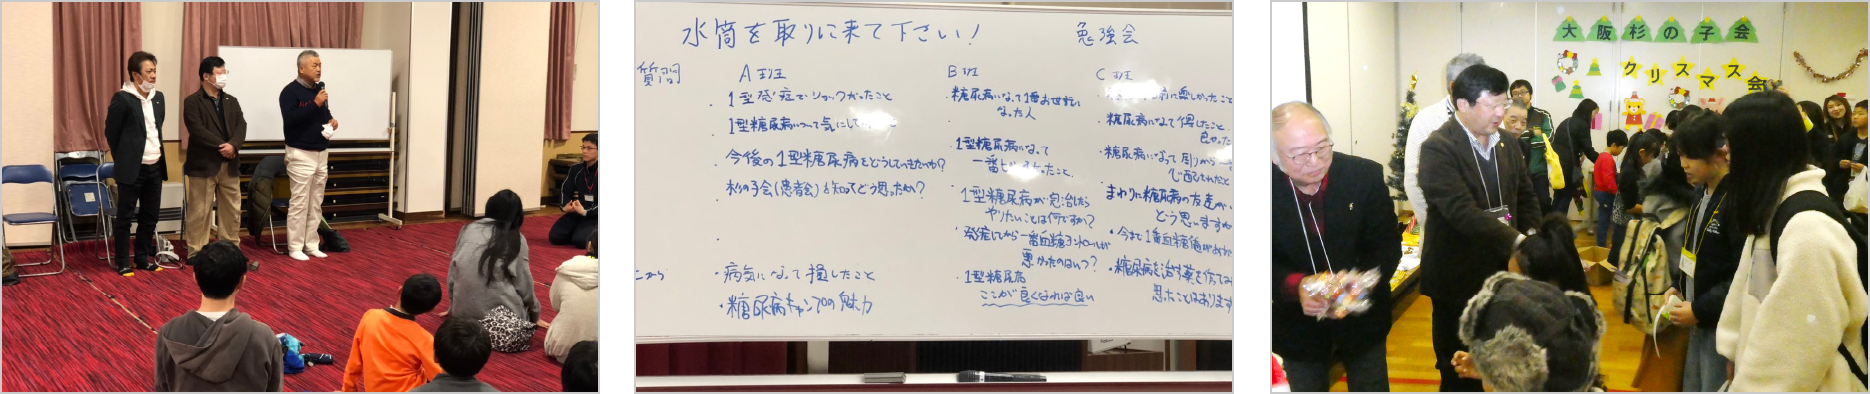 水筒を取りに来て下さい!
勉強会
質問
A班
1型発症でショックだったこと
1型糖尿病について気にして
今後の1型糖尿病をどうしていきたいか?
杉の子会(患者会)を知ってどう思ったか?
病気になって損したこと
・糖尿病キャンプの魅力
から
B班
・糖尿病になって1番お世話に
なった人
1型糖尿病になって
一番
たこと
・1型糖尿病が完治したら
やりたいことは何ですか?
・発症してから一番血糖コントロールが
悪かったのはいつ?
・1型糖尿病
ここが良くなれば良い
C班
悲しかったこと
・糖尿病になって得したこと、
良かった
・糖尿病になって周りから
・まわりに糖尿病の友達が
どう思いますか
・今まで1番血糖値が
・糖尿病を治す薬を
思ったことはあります
大阪杉の子会
クリスマス会